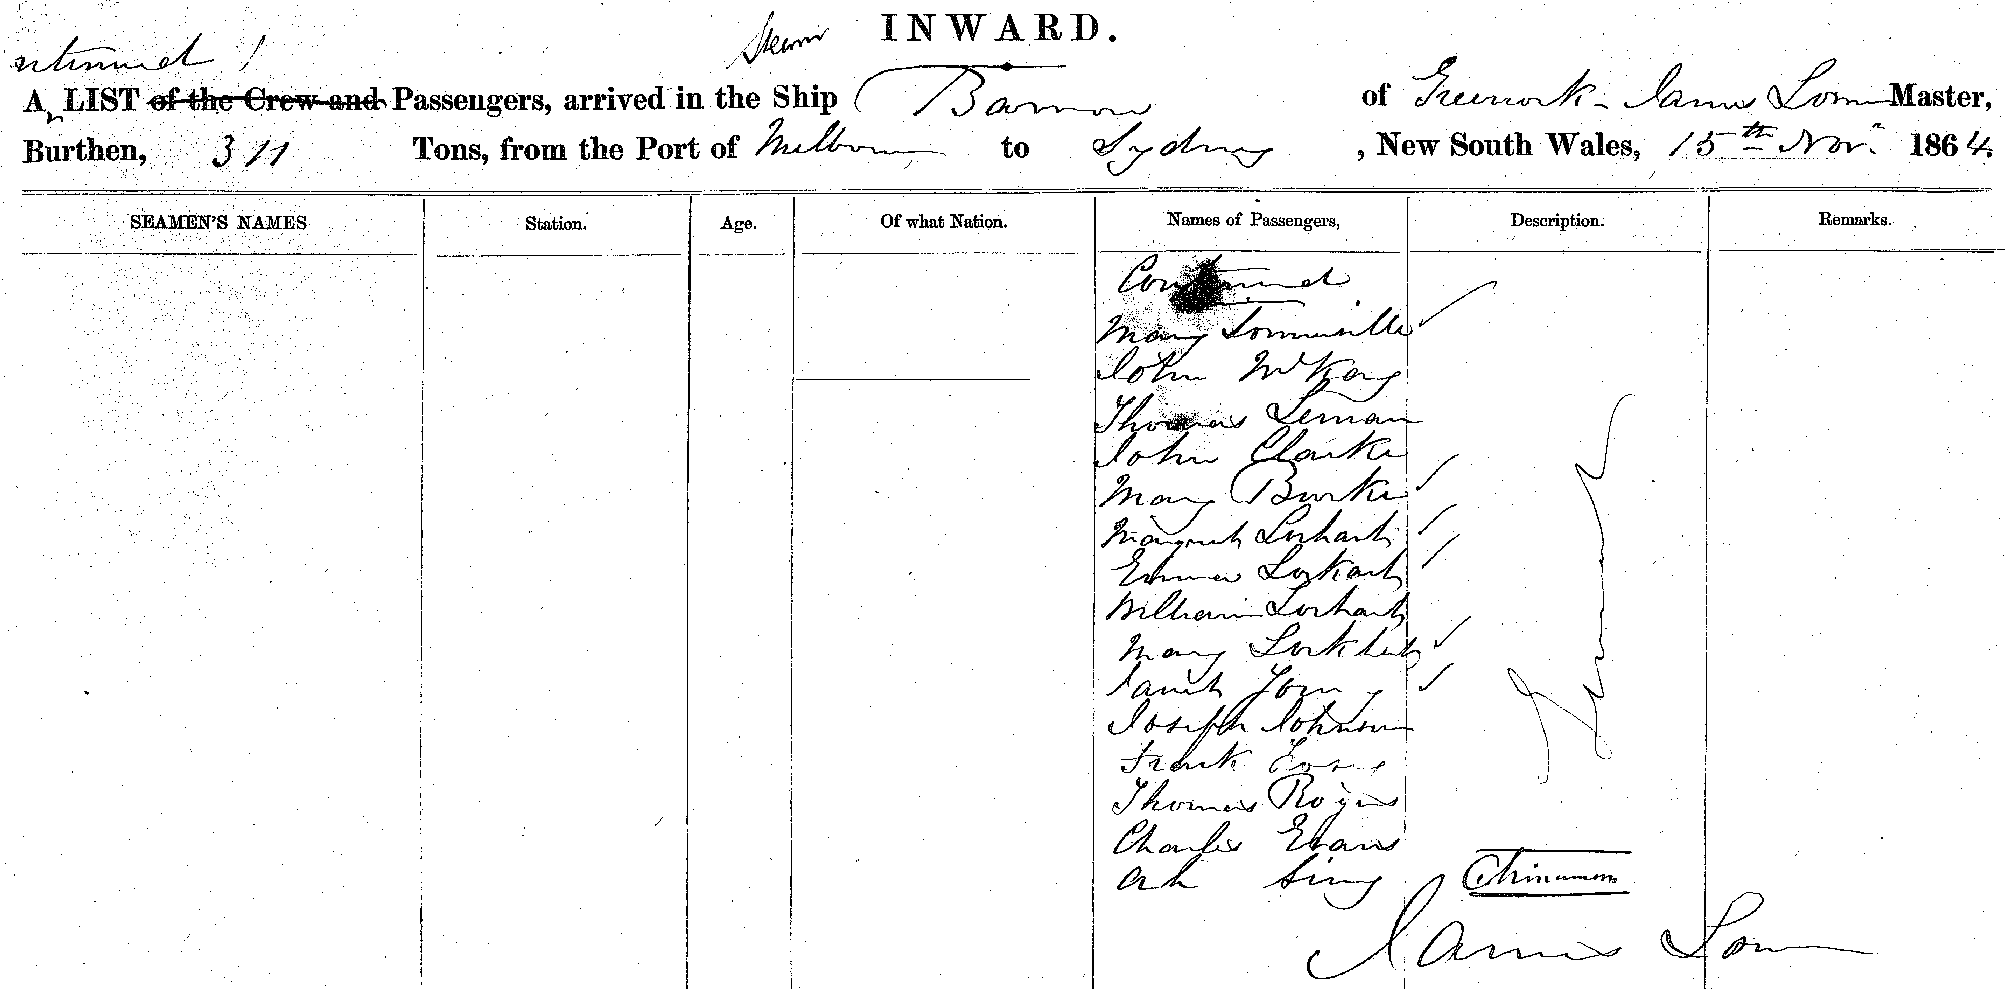 Steam INWARD.
A LIST of the Crew and Passengers, arrived in the Ship of Greenock James Master,
Burthen, 311 Tons, from the Port of Melbourne to Sydney, New South Wales, 15th Nov. 1864.
SEAMEN'S NAMES Station. Age. Of what Nation. Names of Passengers, Description. Remarks.
Continued
Mary
John McKay
Thomas
John Clarke
Mary Burke
Margaret Lockart
Emma Lockart
William Lockart
Mary
Janet
Joseph Johnson
Frank
Thomas Rogers
Charles Evans
Ah Sing Chinaman
James